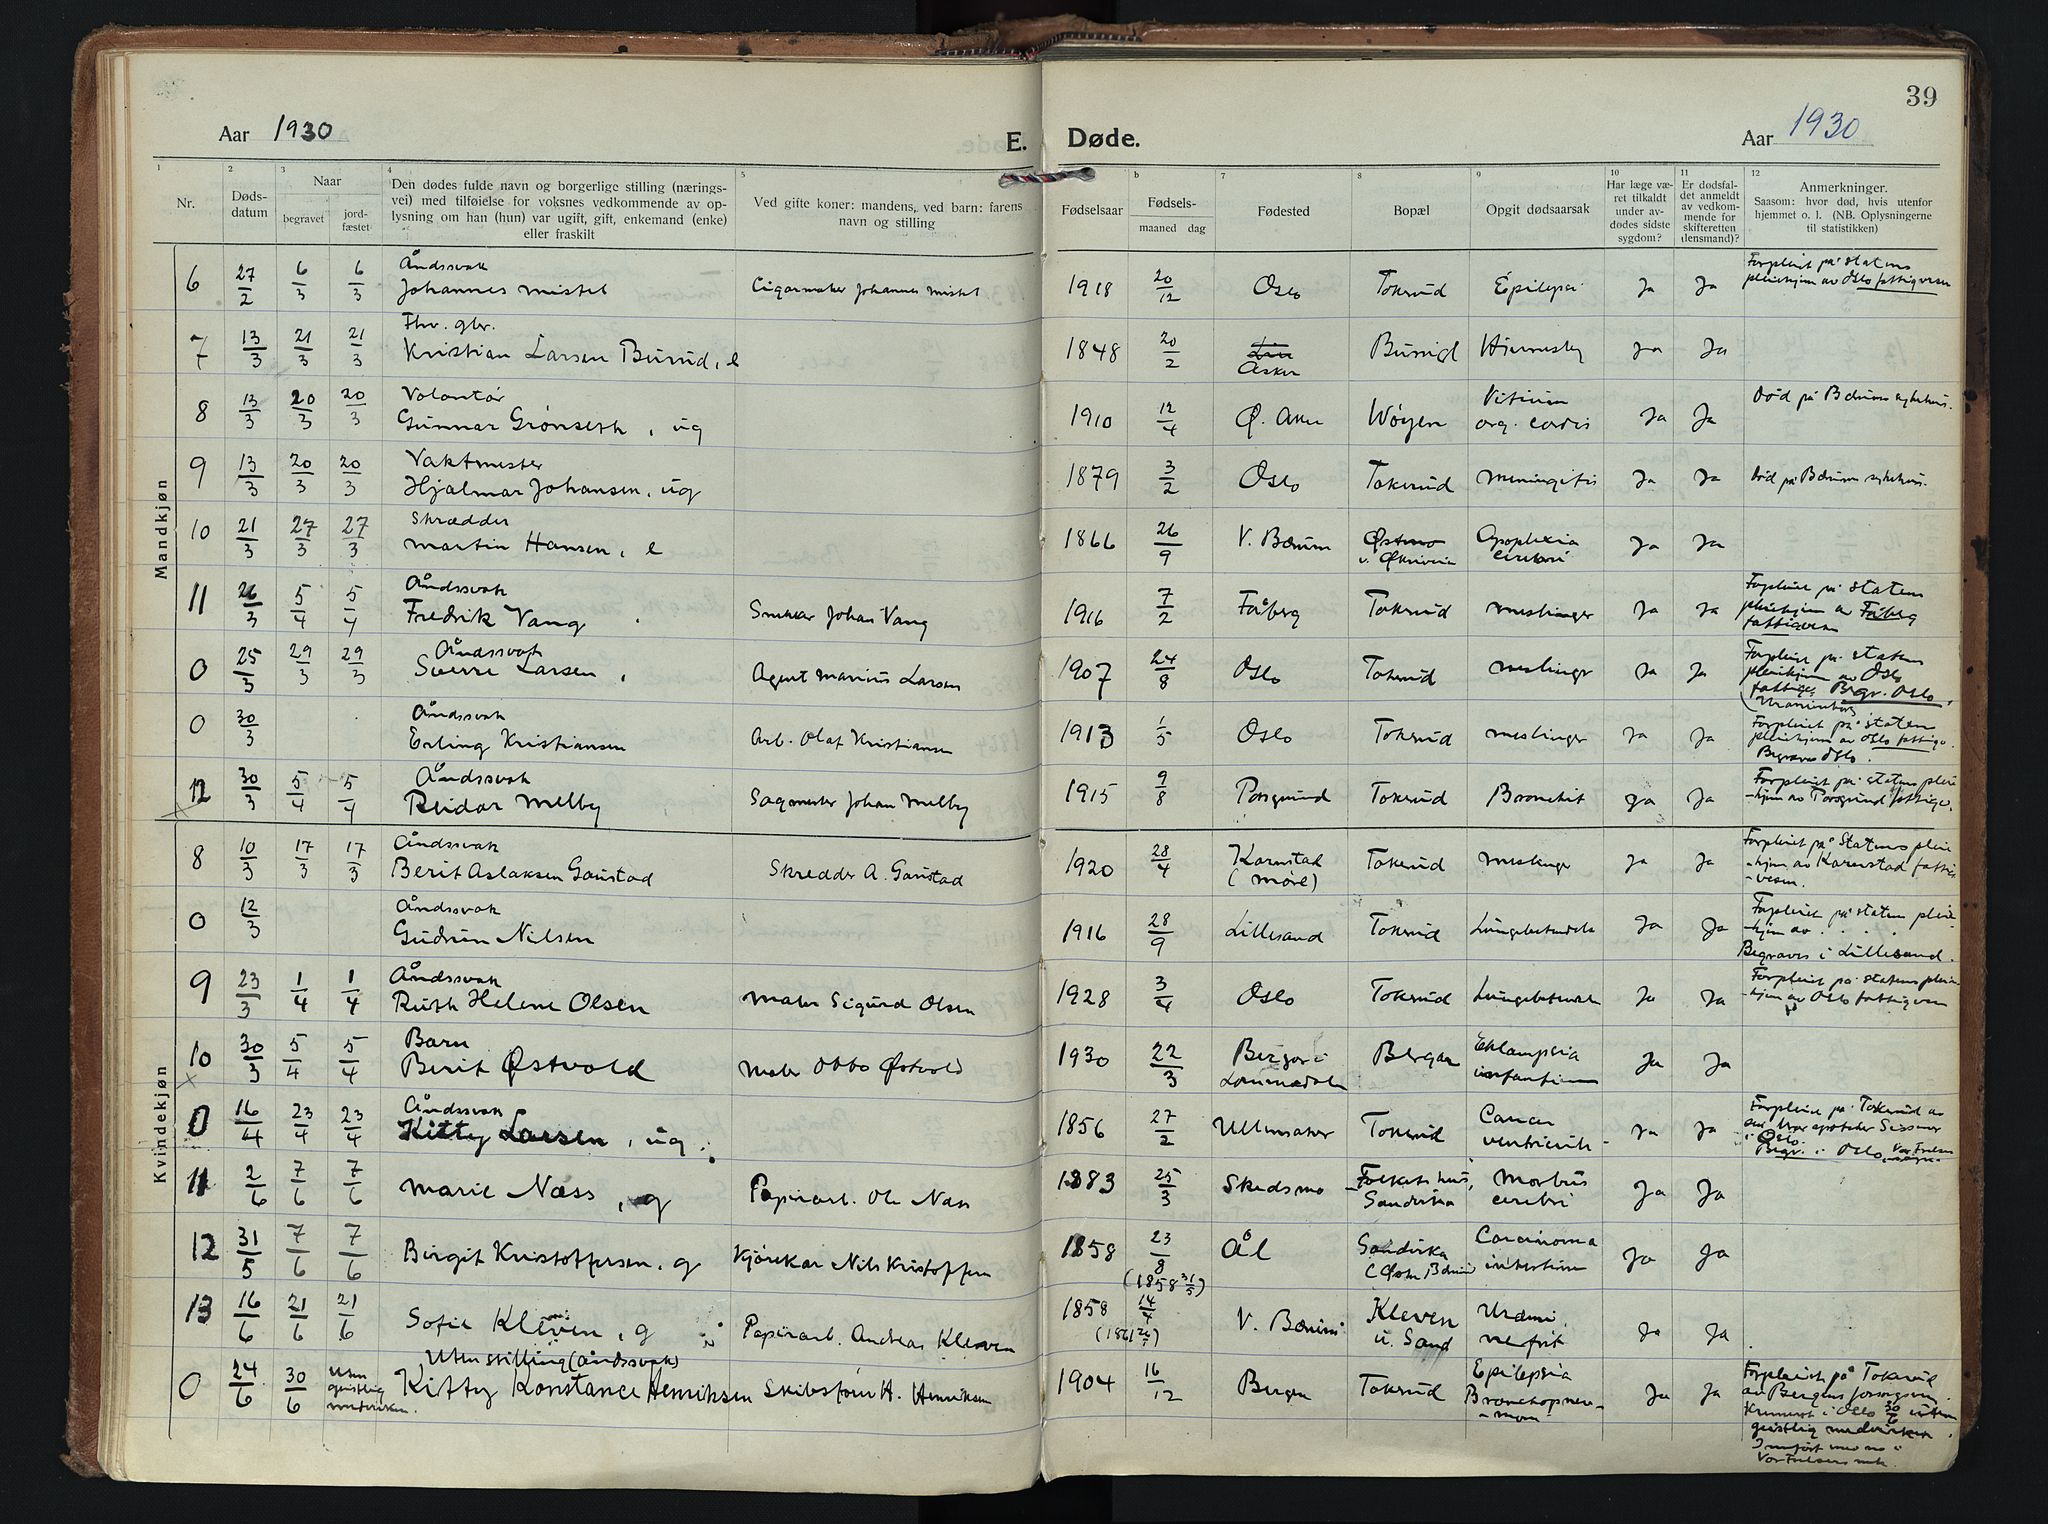 39
Aar 1930 E. Døde. Aar 1930
1 2 3 4 5 6 7 8 9 10 11 12
Nr. Dødsdatum Naar begravet jordfæstet
Den dødes fulde navn og borgerlige stilling (næringsvei) med tilføielse for voksnes vedkommende av oplysning om han (hun) var ugift, gift, enkemand (enke) eller fraskilt
Ved gifte koner: mandens, ved barn: farens navn og stilling
Fødselsaar Fødselsmaaned dag Fødested Bopæl Opgit dødsaarsak
Har læge været tilkaldt under avdødes sidste sygdom?
Er dødsfaldet anmeldt av vedkommende for skifteretten (lensmand)?
Anmerkninger. Saasom: hvor død, hvis utenfor hjemmet o. l. (NB. Oplysningerne til statistikken)
Mandkjøn
6 27/2 6/3 6/3 Åndssvak Johannes Mistel Cigarmaker Johannes Mistel 1918 20/12 Oslo Tokerud Epilepsi Ja Ja Forpleiet på statens pleiehjem av Oslo fattigvesen
7 13/3 21/3 21/3 Fhv. gbr. Kristian Larsen Burud, e 1848 20/2 Asker Ja Ja
8 13/3 20/3 20/3 Volontør Gunnar Grønseth, ug 1910 12/4 Ø. Aker Wøyen Vitium org. cordis Ja Ja Død på Bærums sykehus.
9 13/3 20/3 20/3 Vaktmester Hjalmar Johansen, ug 1879 3/2 Oslo Tokerud Meningitis Ja Ja Død på Bærums sykehus.
10 21/3 27/3 27/3 Skrædder Martin Hansen, e 1866 26/9 V. Bærum Apoplexia cerebri Ja Ja
11 26/3 5/4 5/4 Åndssvak Fredrik Vang Snekker Johan Vang 1916 7/2 Fåberg Tokerud Meslinger Ja Ja Forpleiet på statens pleiehjem av Fåberg fattigvesen
0 25/3 29/3 29/3 Åndssvak Sverre Larsen, Agent Marius Larsen 1907 24/8 Oslo Tokerud Meslinger Ja Ja Forpleiet på statens pleiehjem av Oslo fattigv. Begr. Oslo,
0 30/3 Åndssvak Erling Kristiansen Arb. Olaf Kristiansen 1913 1/5 Oslo Tokerud Meslinger Ja Ja Forpleiet på statens pleiehjem av Oslo fattigv. Begraves Oslo.
12 30/3 5/4 5/4 Åndssvak Reidar Melby Sagmester Johan Melby 1915 9/8 Porsgrund Tokerud Bronchit Ja Ja Forpleiet på statens pleiehjem av Porsgrund fattigv.
Kvindekjøn
8 10/3 17/3 17/3 Åndssvak Berit Aslaksen Gaustad Skredder A. Gaustad 1920 28/4 (Møre) Tokerud Meslinger Ja Ja Forpleiet på Statens pleiehjem av fattigvesen.
0 12/3 Åndssvak Gudrun Nilsen 1916 28/9 Lillesand Tokerud Lungebetændelse Ja Ja Forpleiet på statens pleiehjem av . . . . Begraves i Lillesand.
9 23/3 1/4 1/4 Åndssvak Ruth Helene Olsen Maler Sigurd Olsen 1928 3/4 Oslo Tokerud Lungebetændelse Ja Ja Forpleiet på statens pleiehjem av Oslo fattigvesen
10 30/3 5/4 5/4 Barn Berit Østvold Maler Østvold 1930 22/3 Lommedalen Eklampsia infantium Ja Ja
0 16/4 23/4 23/4 Åndssvak Kitty Larsen, ug. 1856 27/2 Ullensaker Tokerud Cancer ventriculi Ja Ja Forpleiet på Tokerud av Oslo. Begr. i Oslo,
11 2/6 7/6 7/6 Marie Næss, g Papirarb. Ole Næss 1883 25/3 Skedsmo Folkets hus, Sandvika Morbus cerebri Ja Ja
12 31/5 7/6 7/6 Birgit Kristoffersen, g Kjørekar Nils Kristoffersen 1858 23/8 Ål Sandvika Carcinoma intestini Ja Ja
13 16/6 21/6 21/6 Sofie Kleven, g Papirarb. Andreas Kleven (1858 31/5) 1858 14/4 V. Bærum Kleven u. Sand Uræmi, nefrit Ja Ja
0 24/6 30/6 Uten geistlig medvirken. Uten stilling (åndssvak) Kitty Konstance Henriksen Skibsfører H. Henriksen 1904 16/12 Bergen Tokerud Epilepsia Bronchopneumoni Ja Ja Forpleiet på Tokerud av Bergens forsorgsvesen. Kremert i Oslo 30/6 uten geistlig medvirken. Innført i Vor Frelsers